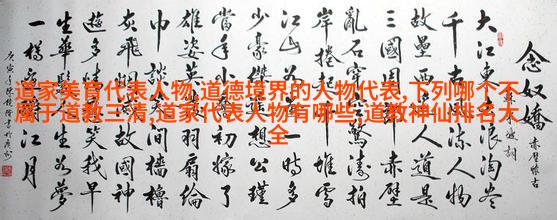 道家美育代表人物,道德境界的人物代表,下列哪个不
属于道教三清,道家代表人物有哪些,道教神仙排名大
全
念奴
赤壁怀古
大江東去浪淘盡
千古風流人物
故壘西邊人道是
三國周郎赤壁
亂石驚濤
岸捲起千堆雪
江山如畫一時多
少豪傑遙想公瑾
當年小喬初嫁了
雄姿英發羽扇綸
巾談笑間檣櫓
灰飛煙滅故國神
遊多情應笑我早
生華髮人生如夢
一樽還酹江月